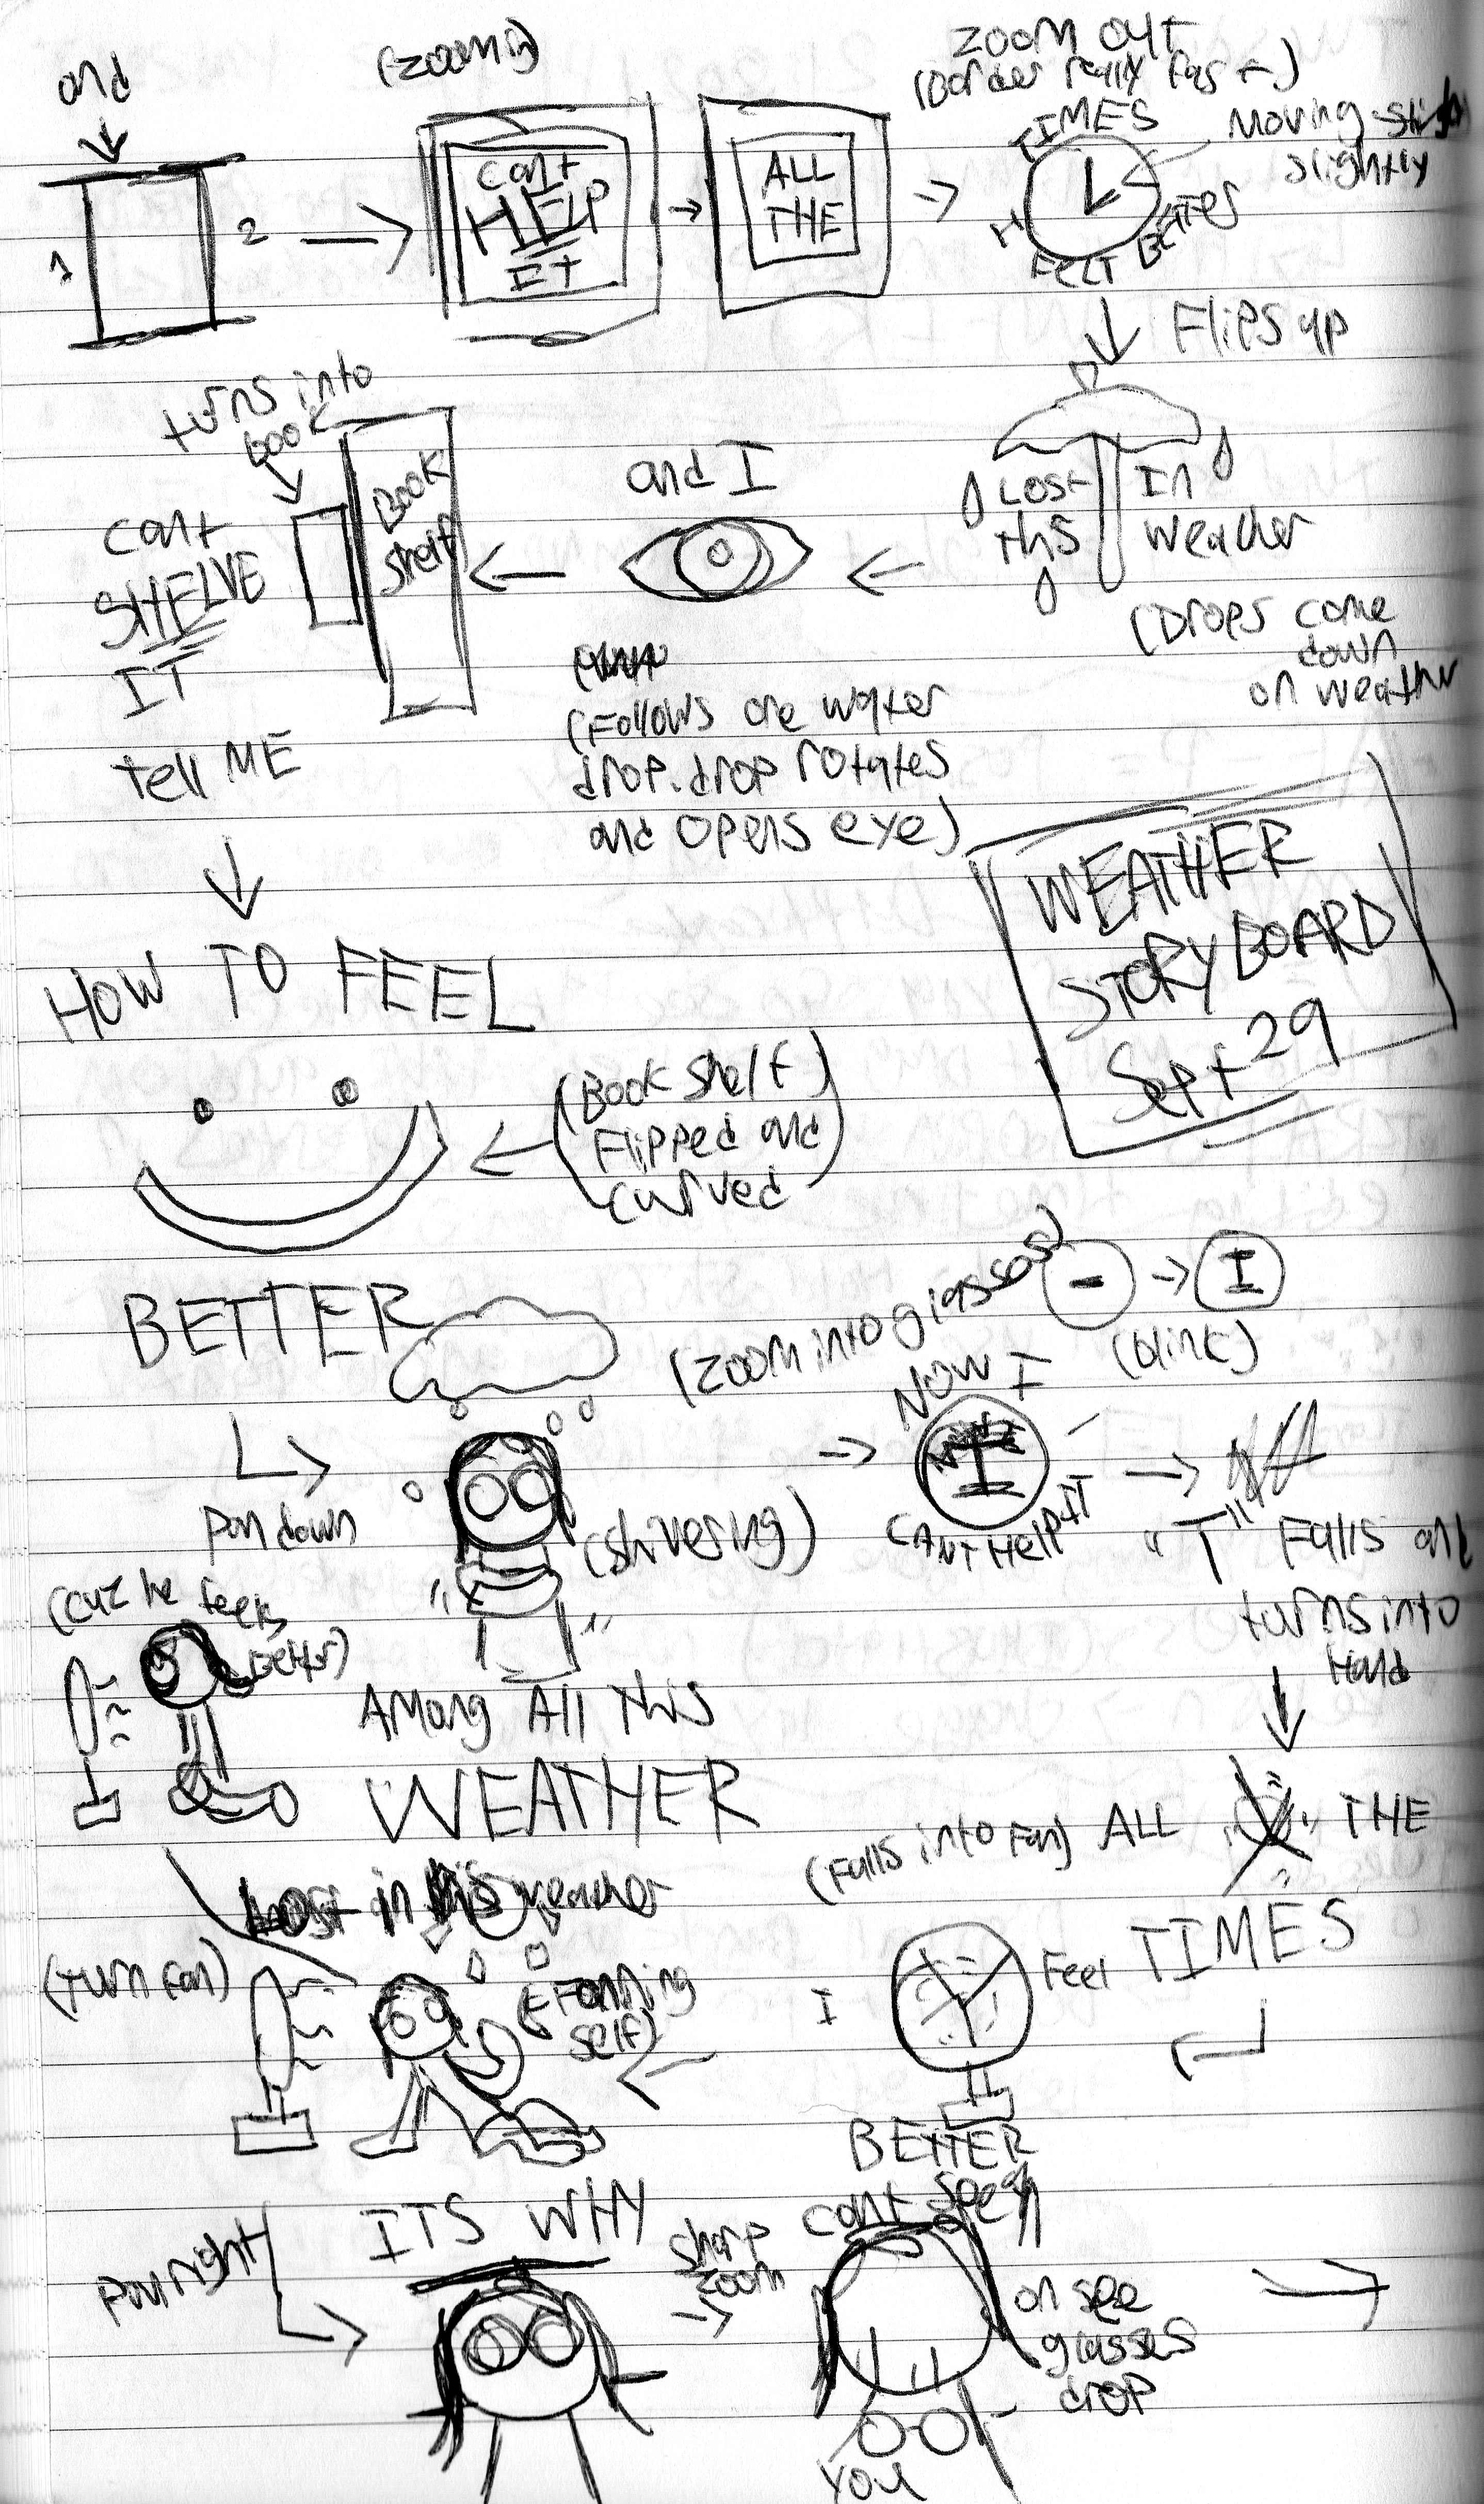 and
(zoom in)
zoom out
(Border really fast)
1
2
can't
HELP
IT
ALL
THE
TIMES
I
FELT BETTER
Moving
slightly
Flips up
Lost
this
In
weather
(Drops come
down
on weather
and I
(Follows one water
drop. drop rotates
and opens eye)
turns into
book
Book
shelf
can't
SHELVE
IT
tell ME
WEATHER
STORYBOARD
Sept 29
HOW TO FEEL
(Book shelf
Flipped and
curved
BETTER
Pan down
(shivering)
(zoom into glasses)
I
(blink)
NOW I
I
CAN'T HELP IT
"T" Falls and
turns into
Hand
(cuz he feels
better)
Among All this
WEATHER
(Falls into Fan) ALL THE
TIMES
I
Feel
BETTER
Lost in this weather
(turn fan)
(Fanning
self)
Pan right
ITS WHY
sharp
zoom
can't
on see
glasses
drop
you